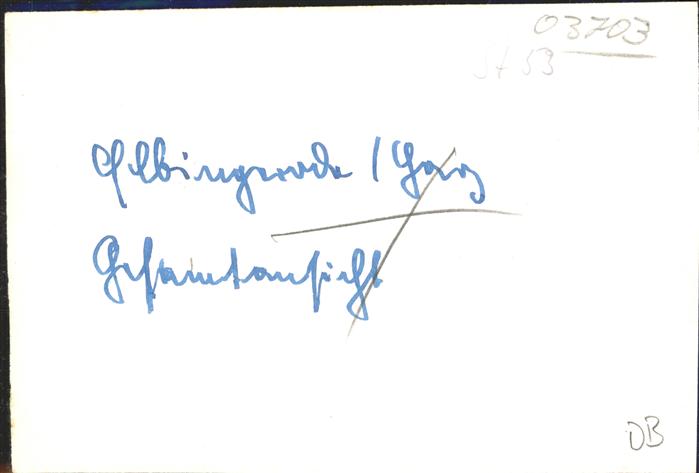 03703
St 53
Elbingerode / Harz
Gesamtansicht
DB